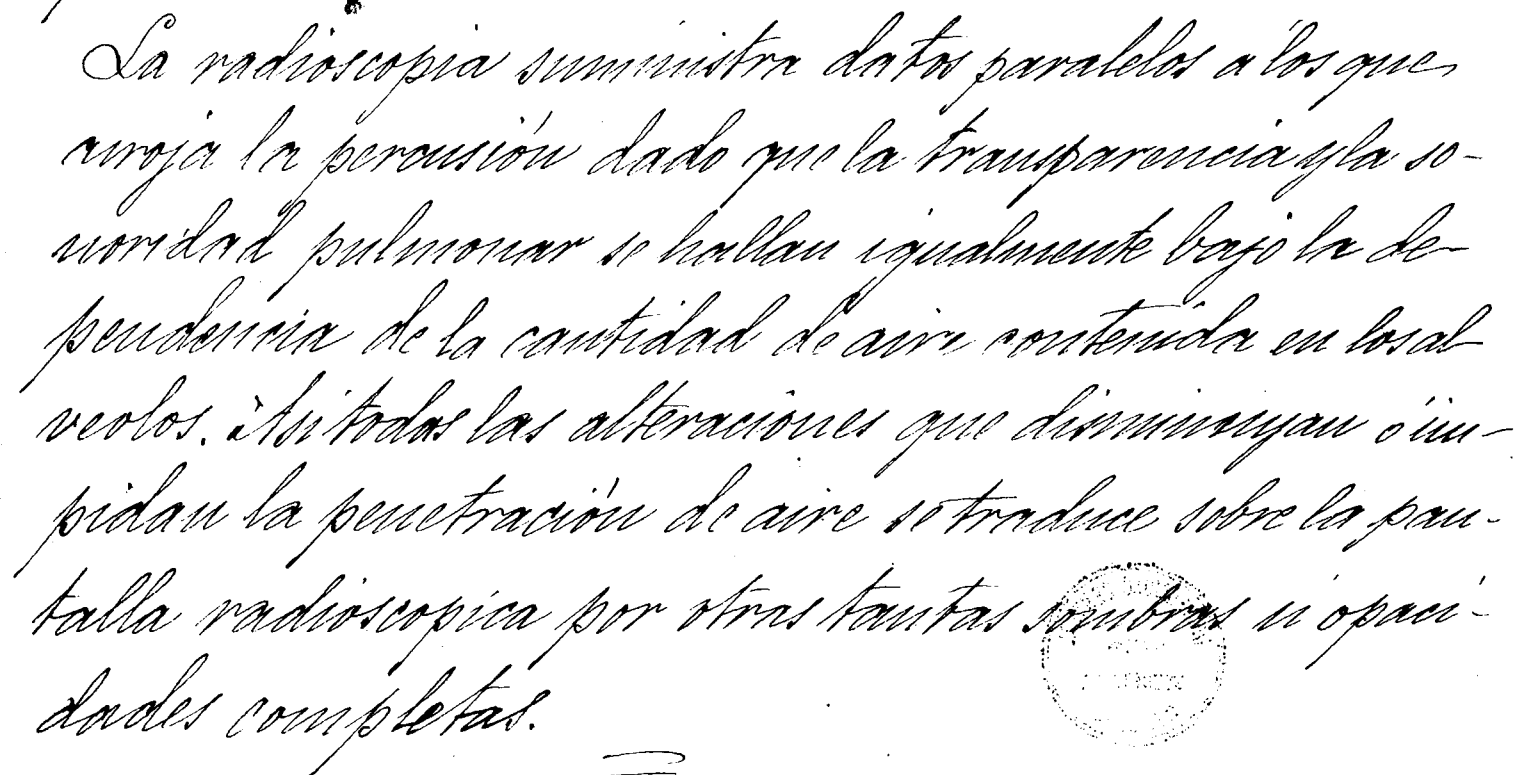 La radioscopia suministra datos paralelos a los que
arroja la percusión dado que la transparencia y la so-
noridad pulmonar se hallan igualmente bajo la de-
pendencia de la cantidad de aire contenida en los al-
veolos. Asi todas las alteraciones que disminuyan ó im-
pidan la penetración de aire se traduce sobre la pan-
talla radioscopica por otras tantas sombras u opaci-
dades completas.